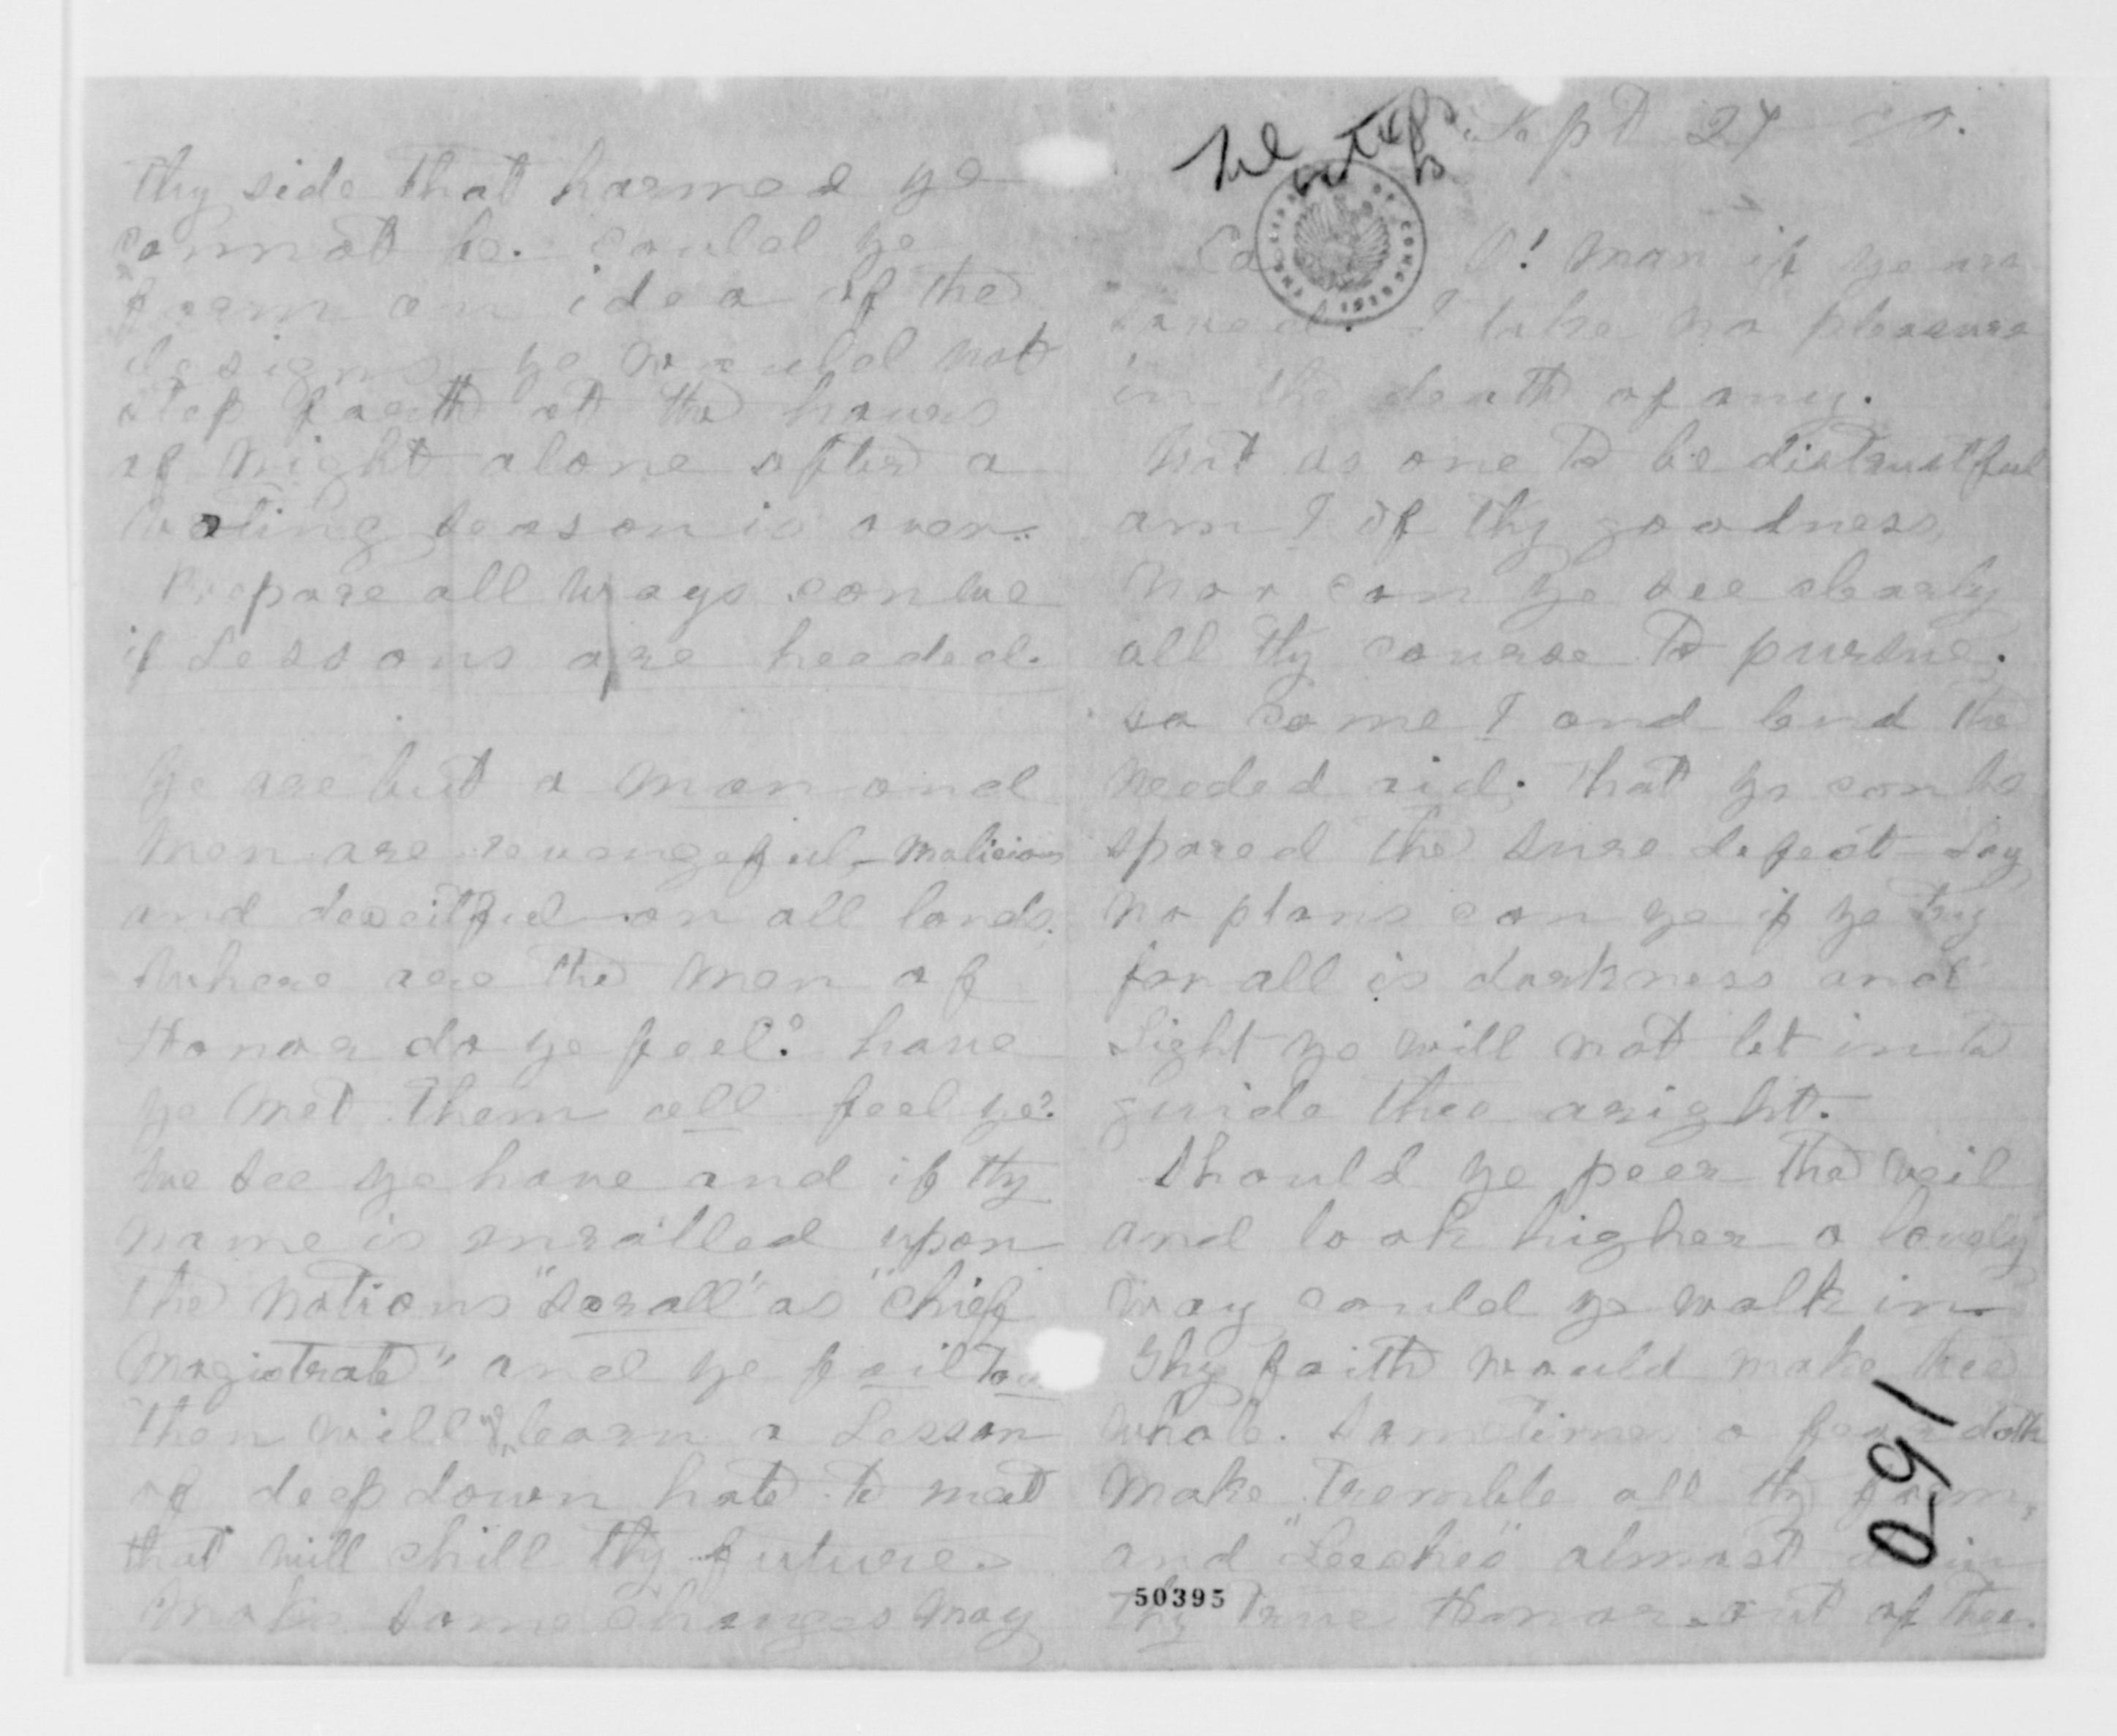 Sept 27
O! man if ye are
saved. I take no pleasure
in the death of any.
Not as one to be distrustful
am I of thy goodness
nor can ye see clearly
all thy course to pursue.
so come I and lend the
needed aid. that ye can be
spared the sure defeat Lay
no plans can ye if ye try
for all is darkness and
Light ye will not let in to
guide thee aright.
Should ye peer the veil
and look higher a lovely
way could ye walk in
Thy faith would make thee
whole. Sometimes a fear doth
make tremble all thy form,
and "Leeches" almost
thy true Honor out of thee.
50395
THE LIBRARY OF CONGRESS
thy side that harmed ye
cannot be. could ye
form an idea of the
designs ye would not
step forth at the hours
of night alone after a
voting season is over.
Prepare all ways can we
if Lessons are heeded.
Ye are but a man and
men are revengeful, malicious
and deceitful on all lands.
where are the men of
Honor do ye feel? have
ye met them all feel ye?
we see ye have and if thy
name is enrolled upon
the nations "scroll" as "Chief
Magistrate" and ye fail
then will ye learn a Lesson
of deep down hate to meet
that will chill thy future.
Make some changes may